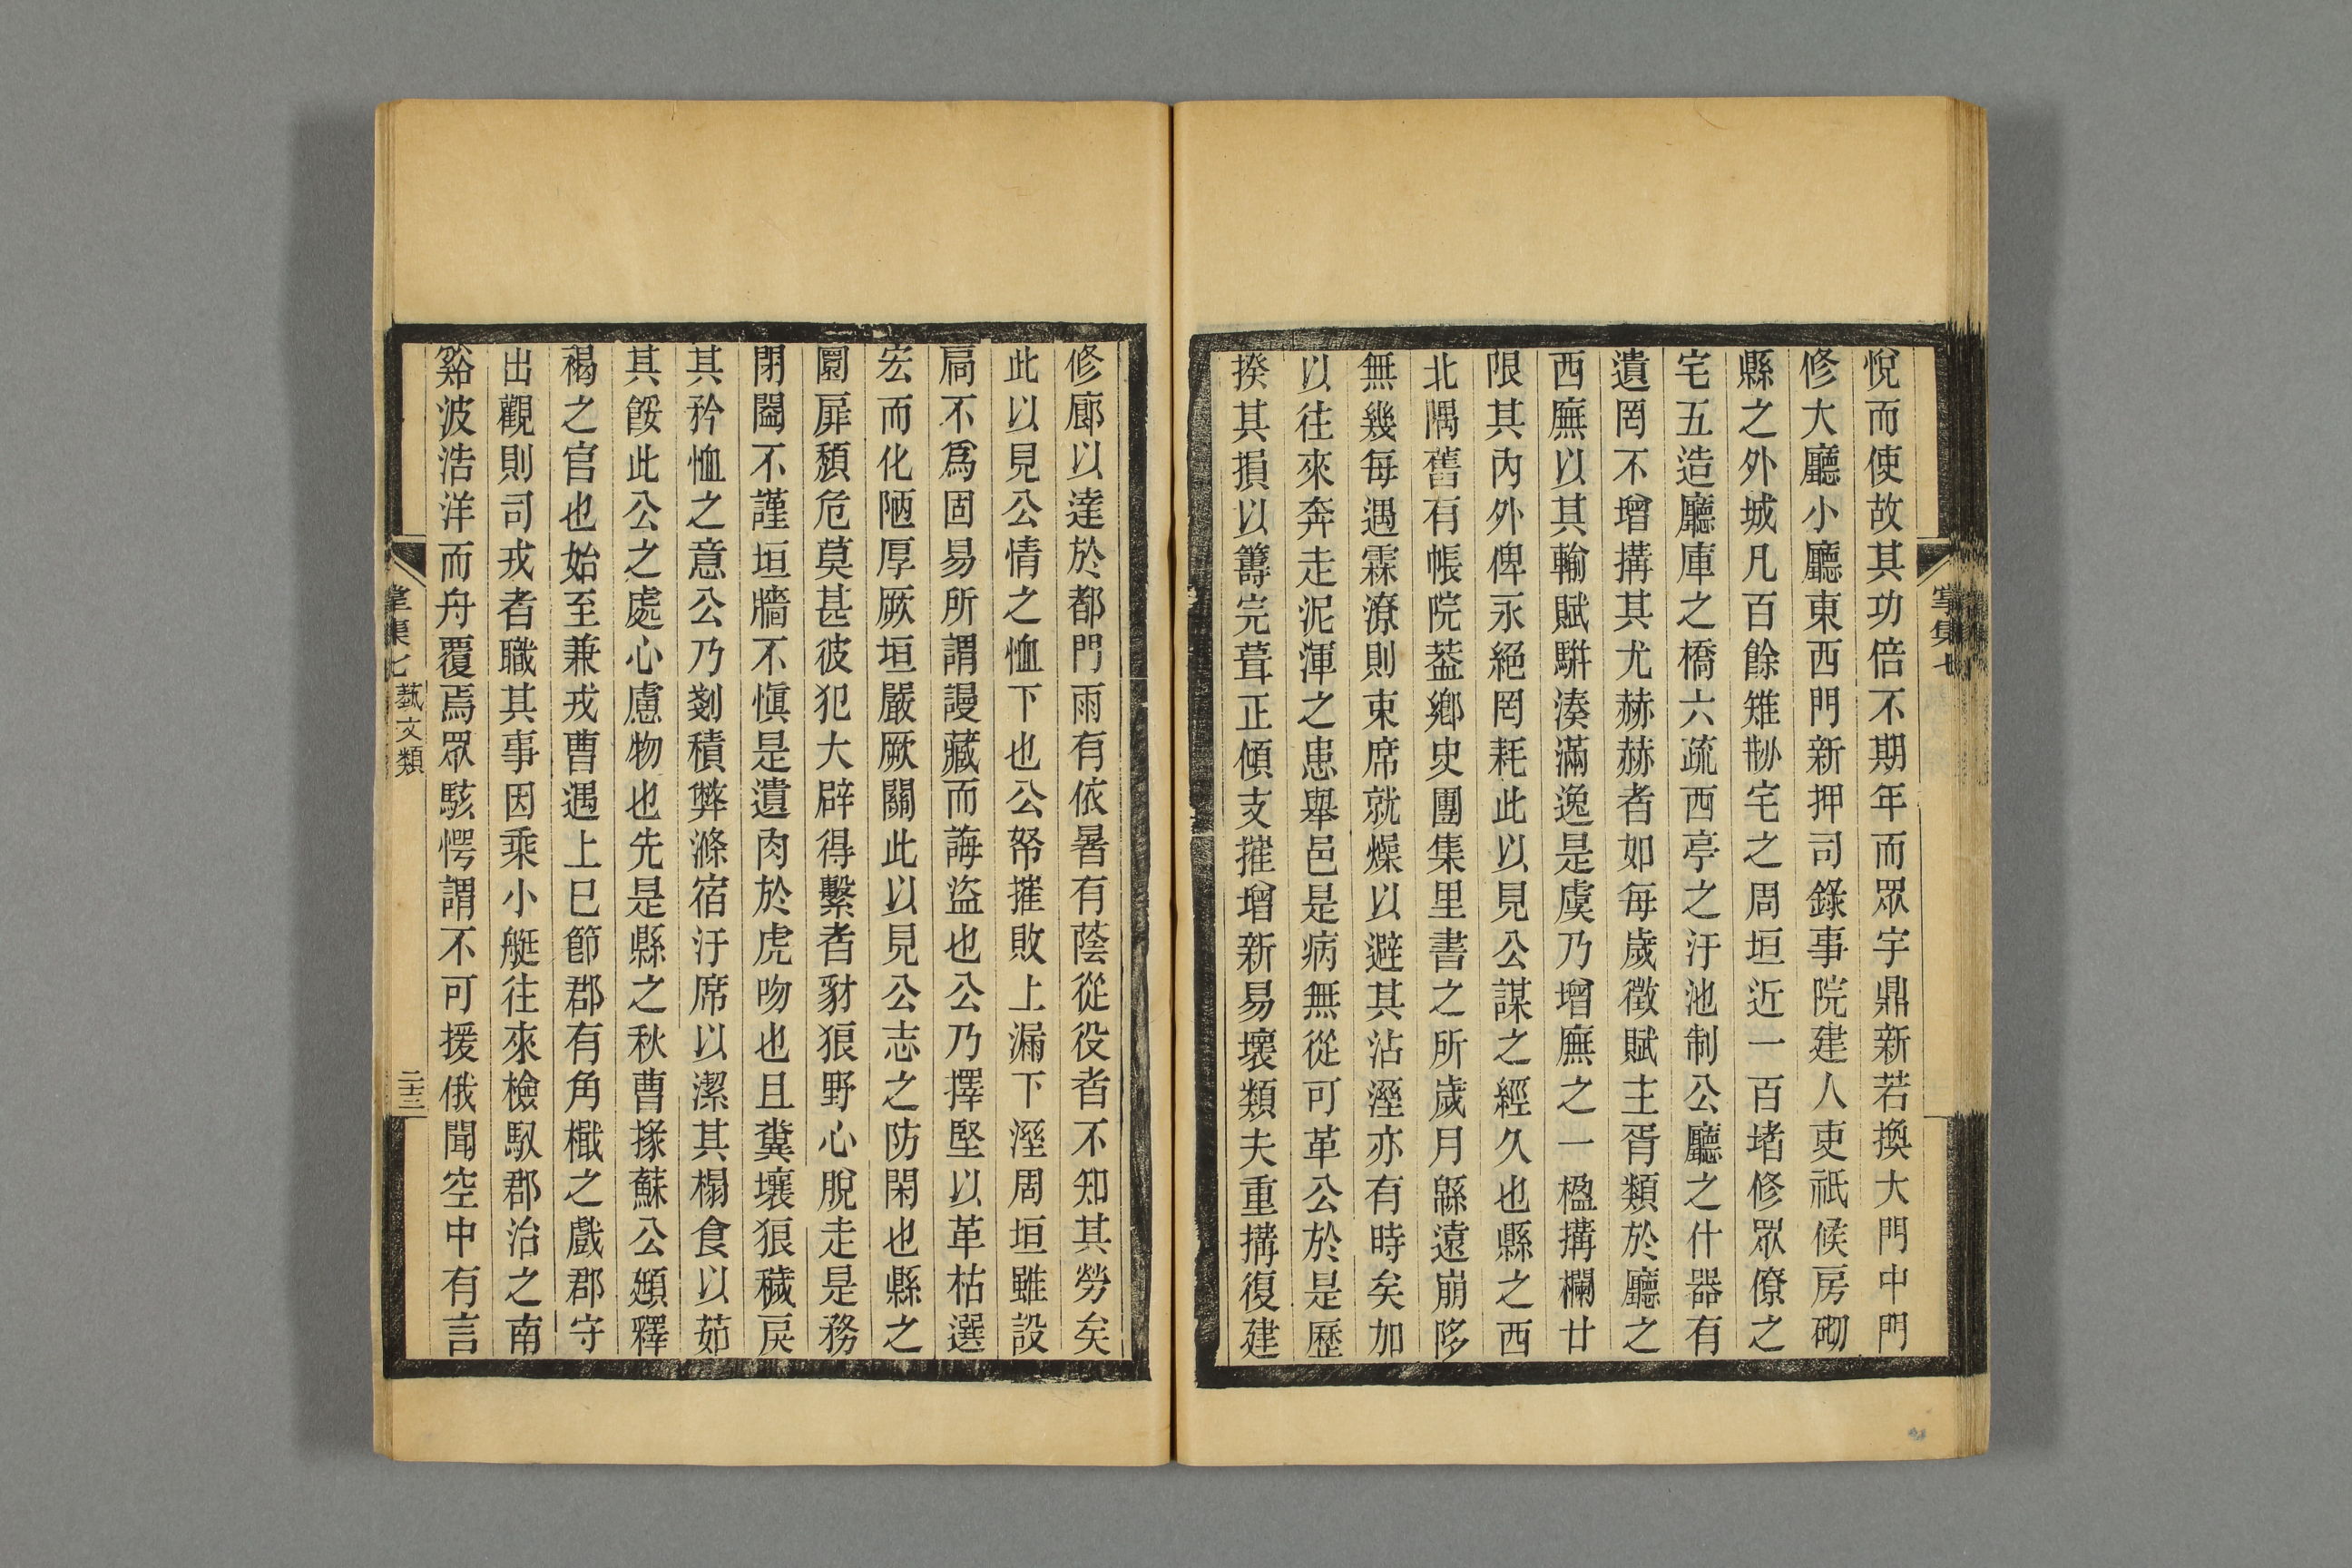 悅而使故其功倍不期年而眾宇鼎新若換大門中門
修大廳小廳東西門新押司錄事院建人吏祇候房砌
縣之外城凡百餘雉刱宅之周垣近一百堵修眾僚之
宅五造廳庫之橋六疏西亭之汙池制公廳之什器有
遺罔不增搆其尤赫赫者如每歲徵賦主胥類於廳之
西廡以其輸賦駢湊滿逸是虞乃增廡之一楹搆欄廿
限其內外俾永絕罔耗此以見公謀之經久也縣之西
北隅舊有帳院葢鄉史團集里書之所歲月緜遠崩陊
無幾每遇霖潦則束席就燥以避其沾溼亦有時矣加
以往來奔走泥渾之患舉邑是病無從可革公於是歷
揆其損以籌完葺正傾支摧增新易壞類夫重搆復建
修廊以達於都門雨有依暑有蔭從役者不知其勞矣
此以見公情之恤下也公帑摧敗上漏下溼周垣雖設
扃不爲固易所謂謾藏而誨盜也公乃擇堅以革枯選
宏而化陋厚厥垣嚴厥關此以見公志之防閑也縣之
圜扉頹危莫甚彼犯大辟得繫者豺狼野心脫走是務
閉闔不謹垣牆不愼是遺肉於虎吻也且糞壤狼穢戾
其矜恤之意公乃剗積弊滌宿汙席以潔其榻食以茹
其餒此公之處心慮物也先是縣之秋曹掾蘇公頲釋
褐之官也始至兼戎曹遇上巳節郡有角檝之戲郡守
出觀則司戎者職其事因乘小艇往來檢馭郡治之南
谿波浩洋而舟覆焉眾駭愕謂不可援俄聞空中有言
掌集七
藝文類
二十三
掌集七